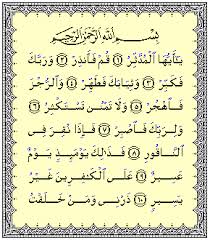 بِسْمِ اللَّهِ الرَّحْمَٰنِ الرَّحِيمِ
يَٰٓأَيُّهَا ٱلْمُدَّثِّرُ ١ قُمْ فَأَنذِرْ ٢ وَرَبَّكَ
فَكَبِّرْ ٣ وَثِيَابَكَ فَطَهِّرْ ٤ وَٱلرُّجْزَ
فَٱهْجُرْ ٥ وَلَا تَمْنُن تَسْتَكْثِرُ ٦
وَلِرَبِّكَ فَٱصْبِرْ ٧ فَإِذَا نُقِرَ فِى
ٱلنَّاقُورِ ٨ فَذَٰلِكَ يَوْمَئِذٍ يَوْمٌ
عَسِيرٌ ٩ عَلَى ٱلْكَٰفِرِينَ غَيْرُ
يَسِيرٍ ١٠ ذَرْنِى وَمَنْ خَلَقْتُ